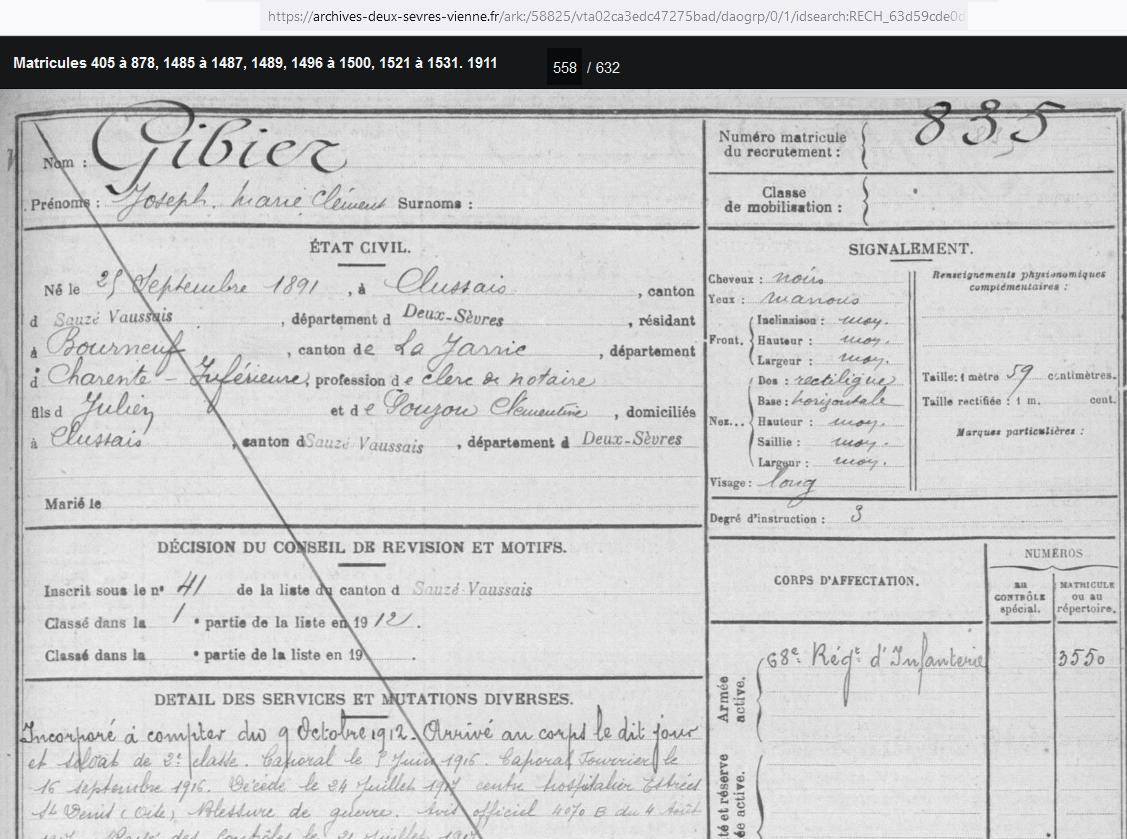 https://archives-deux-sevres-vienne.fr/ark:/58825/vta02ca3edc47275bad/daogrp/0/1/idsearch:RECH_63d59cde0d
Matricules 405 à 878, 1485 à 1487, 1489, 1496 à 1500, 1521 à 1531. 1911 558 / 632
Nom : Gibier
Prénoms : Joseph Marie Clément Surnoms :
ÉTAT CIVIL.
Né le 25 Septembre 1891, à Clussais, canton
d Sauzé Vaussais, département d Deux-Sèvres, résidant
à Bourneuf, canton de La Jarrie, département
d Charente-Inférieure, profession de clerc de notaire
fils d Julien et de Souzou Clémentine, domiciliés
à Clussais, canton d Sauzé Vaussais, département d Deux-Sèvres
Marié le
DÉCISION DU CONSEIL DE REVISION ET MOTIFS.
Inscrit sous le n° 41 de la liste du canton d Sauzé Vaussais
Classé dans la 1 e partie de la liste en 1912.
Classé dans la e partie de la liste en 19 .
DETAIL DES SERVICES ET MUTATIONS DIVERSES.
Incorporé à compter du 9 Octobre 1912. Arrivé au corps le dit jour
et soldat de 2e classe. Caporal le Juin 1916. Caporal Fourrier le
16 septembre 1916. Décédé le 24 Juillet 1917 centre hospitalier Estrées
St Denis (Oise, blessure de guerre. Avis officiel 4070 B du 4 Août
des Contrôles le Juillet 1917
Numéro matricule
du recrutement : 835
Classe
de mobilisation :
SIGNALEMENT.
Cheveux : noirs
Yeux : marrons
Front. Inclinaison : moy.
Hauteur : moy.
Largeur : moy.
Nez... Dos : rectiligne
Base : horizontale
Hauteur : moy.
Saillie : moy.
Largeur : moy.
Visage : long
Renseignements physionomiques
complémentaires :
Taille : 1 mètre 59 centimètres.
Taille rectifiée : 1 m. cent.
Marques particulières :
Degré d'instruction : 3
CORPS D'AFFECTATION.
NUMÉROS
au
CONTRÔLE
spécial.
MATRICULE
ou au
répertoire.
Armée
active.
68e Régt d'Infanterie 3550
té et réserve
ée active.